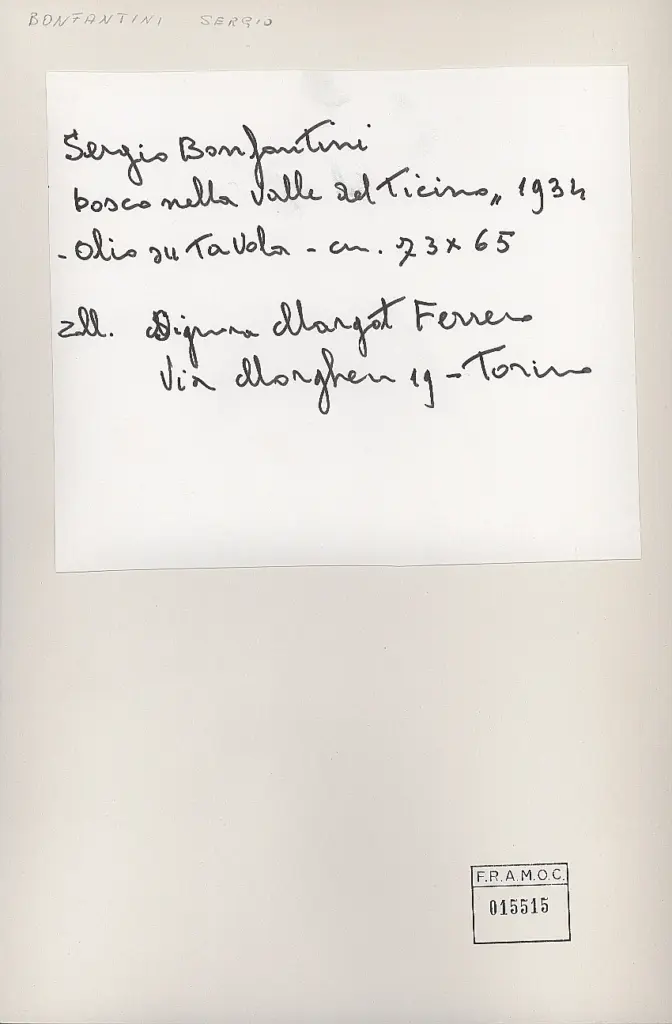 BONFANTINI SERGIO
Sergio Bonfantini
bosco nella Valle del Ticino„ 1934
- Olio su Tavola - cm. 73 x 65
Signora Margot Ferrero
Via Morghen 19 - Torino
F.R.A.M.O.C.
015515